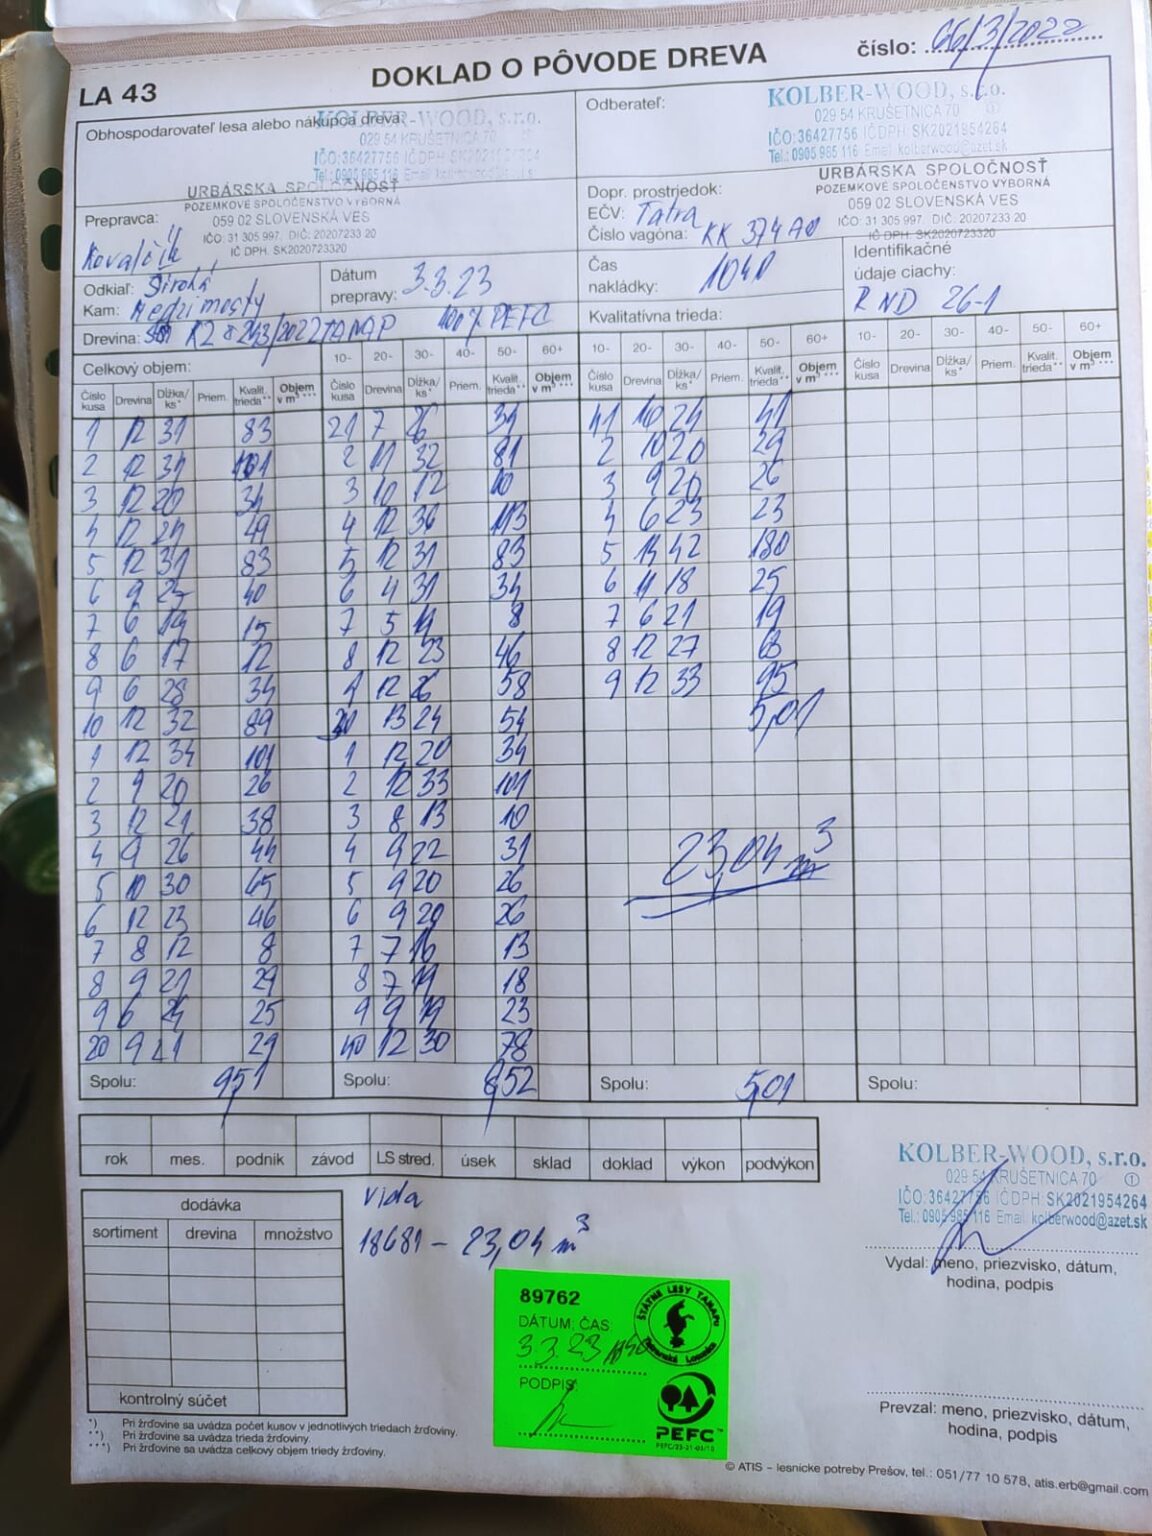 LA 43
DOKLAD O PÔVODE DREVA
číslo: 66/3/2022
Obhospodarovateľ lesa alebo nákupca dreva:
KOLBER-WOOD, s.r.o.
029 54 KRUŠETNICA 70
IČO:36427756 IČDPH SK2021954264
Tel.: 0905 985 116 Email: kolberwood@azet.sk
URBÁRSKA SPOLOČNOSŤ
POZEMKOVÉ SPOLOČENSTVO VÝBORNÁ
059 02 SLOVENSKÁ VES
IČO: 31 305 997, DIČ: 20207233 20
IČ DPH: SK2020723320
Odberateľ:
KOLBER-WOOD, s.r.o.
029 54 KRUŠETNICA 70
IČO:36427756 IČDPH SK2021954264
Tel.: 0905 985 116 Email: kolberwood@azet.sk
URBÁRSKA SPOLOČNOSŤ
POZEMKOVÉ SPOLOČENSTVO VÝBORNÁ
059 02 SLOVENSKÁ VES
IČO: 31 305 997, DIČ: 20207233 20
IČ DPH: SK2020723320
Prepravca:
Kovalčík
Dopr. prostriedok:
EČV: Tatra
Číslo vagóna: KK 374AO
Odkiaľ: Široká
Kam: Medzimosty
Dátum
prepravy: 3.3.23
Čas
nakládky: 1040
Identifikačné
údaje ciachy:
R ND 26-1
Drevina: SM K2 293/2022TANAP 100% PEFC
Kvalitatívna trieda:
Celkový objem:
10- 20- 30- 40- 50- 60+ 10- 20- 30- 40- 50- 60+ 10- 20- 30- 40- 50- 60+
Číslo kusa Drevina Dĺžka/ ks* Priem. Kvalit. trieda** Objem v m³ *** Číslo kusa Drevina Dĺžka/ ks* Priem. Kvalit. trieda** Objem v m³ *** Číslo kusa Drevina Dĺžka/ ks* Priem. Kvalit. trieda** Objem v m³ *** Číslo kusa Drevina Dĺžka/ ks* Priem. Kvalit. trieda** Objem v m³ ***
1 12 31 83 21 7 26 34 41 10 24 41
2 12 34 101 2 11 32 81 2 10 20 29
3 12 20 34 3 10 12 10 3 9 20 26
4 12 24 49 4 12 36 113 4 6 23 23
5 12 31 83 5 12 31 83 5 14 42 180
6 9 25 40 6 4 31 34 6 11 18 25
7 6 19 15 7 5 14 8 7 6 21 19
8 6 17 12 8 12 23 46 8 12 27 63
9 6 28 34 9 12 26 58 9 12 33 95
10 12 32 89 30 13 24 54 5,01
1 12 34 101 1 12 20 34
2 9 20 26 2 12 33 101
3 12 21 38 3 8 13 10
4 9 26 44 4 9 22 31 23,04 m³
5 10 30 65 5 9 20 26
6 12 23 46 6 9 20 26
7 8 12 8 7 7 16 13
8 9 21 29 8 7 19 18
9 6 24 25 9 9 19 23
20 9 21 29 40 12 30 78
Spolu: 9,51 Spolu: 8,52 Spolu: 5,01 Spolu:
rok mes. podnik závod LS stred. úsek sklad doklad výkon podvýkon
dodávka
sortiment drevina množstvo
kontrolný súčet
Vida
18681 – 23,04 m³
KOLBER-WOOD, s.r.o.
029 54 KRUŠETNICA 70 ①
IČO:36427756 IČDPH: SK2021954264
Tel.: 0905 985 116 Email: kolberwood@azet.sk
Vydal: meno, priezvisko, dátum,
hodina, podpis
89762
DÁTUM, ČAS:
3.3.23
PODPIS:
ŠTÁTNE LESY TANAPu
Tatranská Lomnica
PEFC™
PEFC/23-21-03/13
Prevzal: meno, priezvisko, dátum,
hodina, podpis
*) Pri žrďovine sa uvádza počet kusov v jednotlivých triedach žrďoviny.
**) Pri žrďovine sa uvádza trieda žrďoviny.
***) Pri žrďovine sa uvádza celkový objem triedy žrďoviny.
© ATIS – lesnícke potreby Prešov, tel.: 051/77 10 578, atis.erb@gmail.com